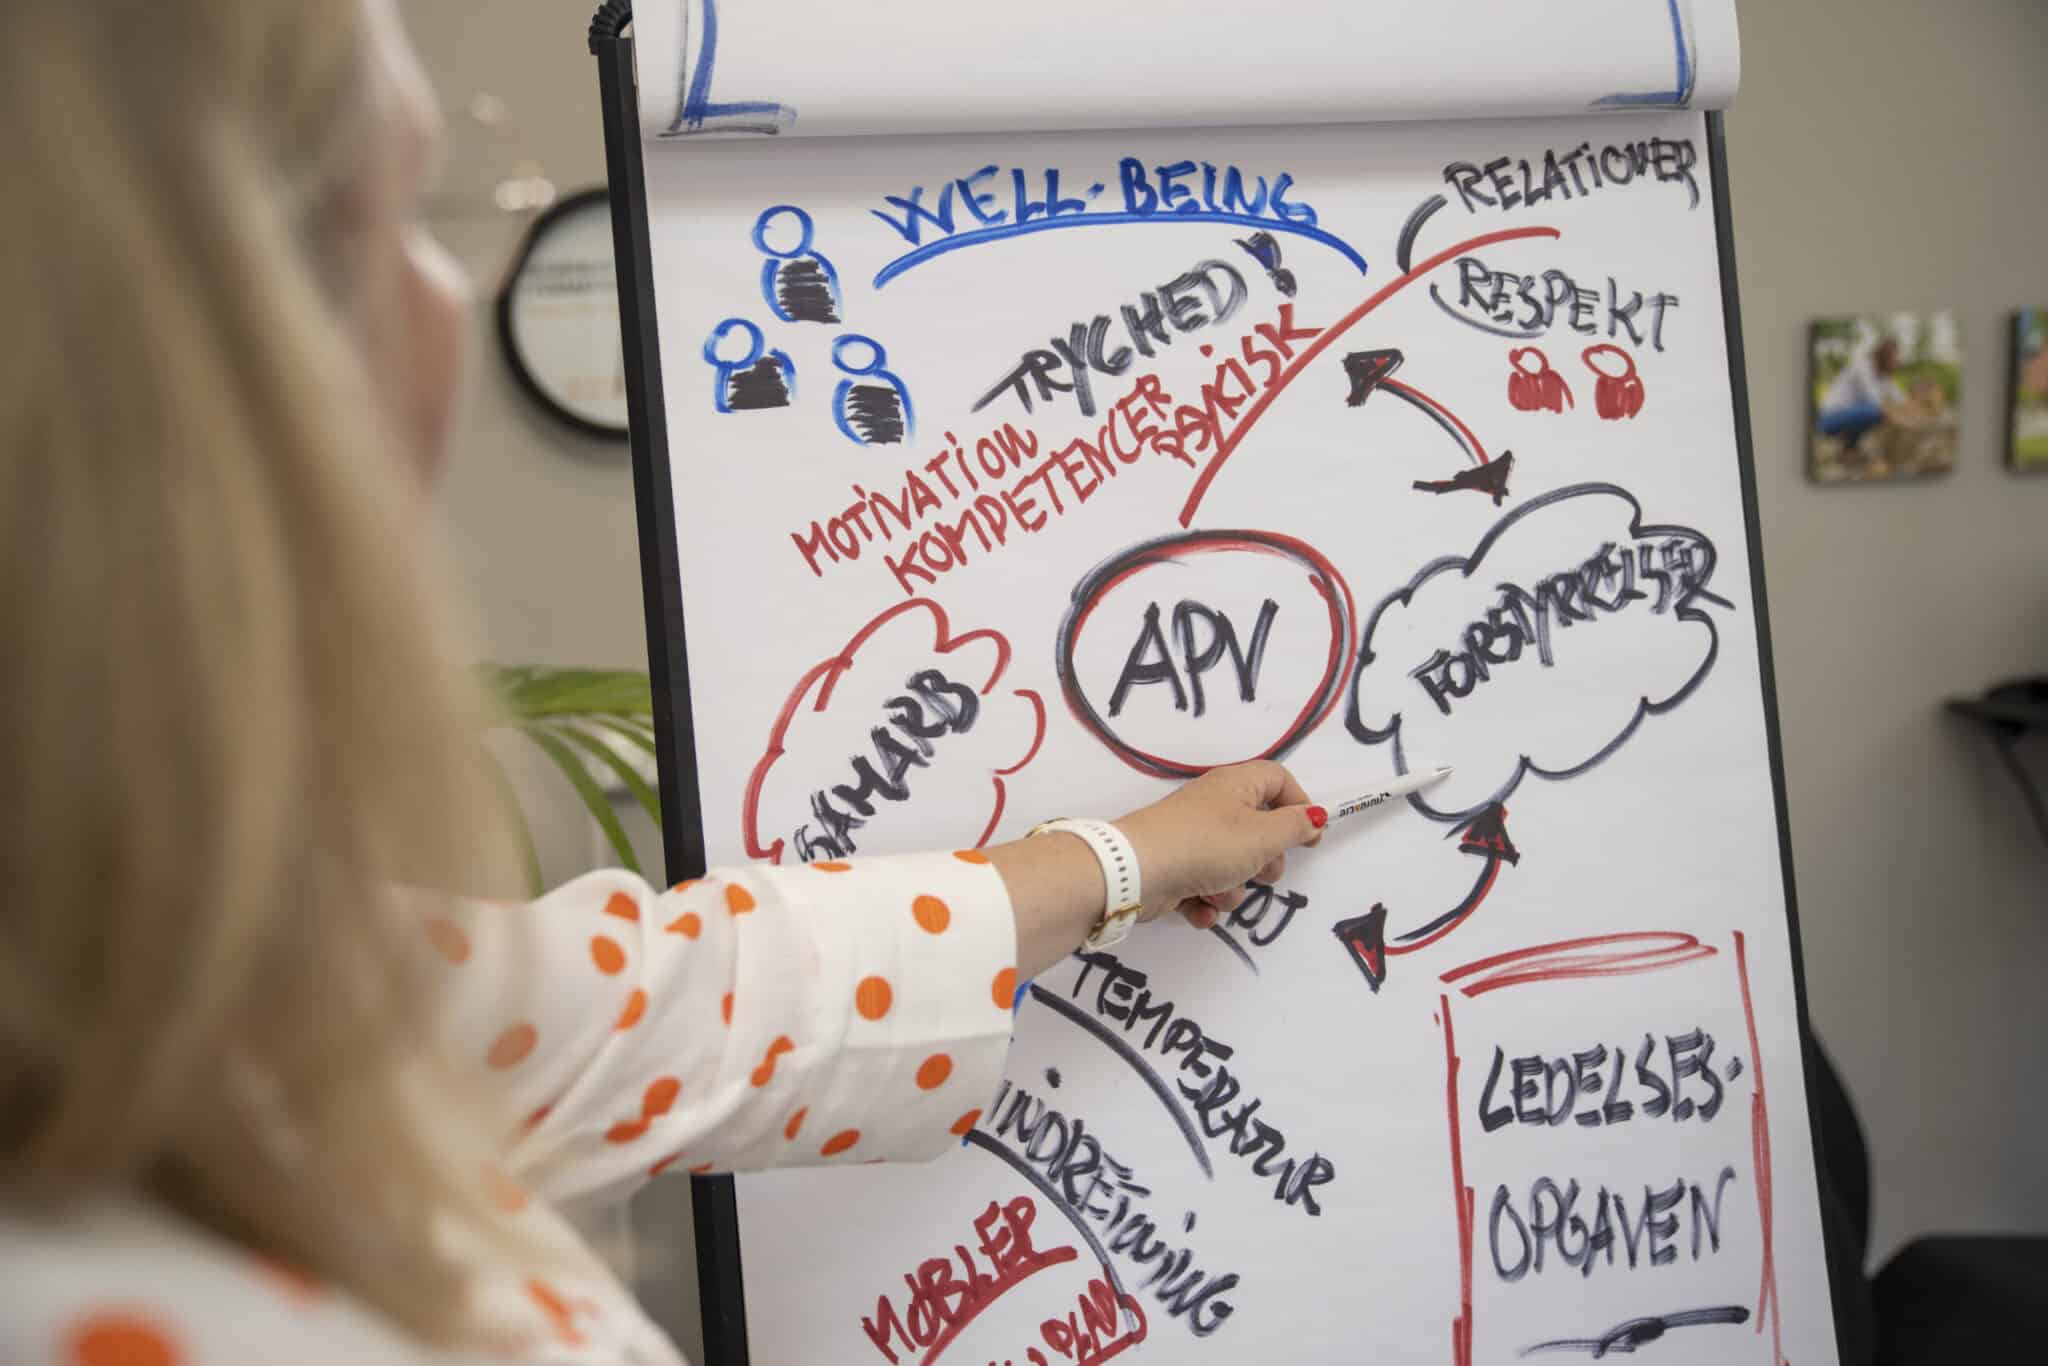 WELL-BEING
RELATIONER
TRYGHED!
RESPEKT
MOTIVATION
KOMPETENCER
PSYKISK
APV
FORSTYRRELSER
SAMARB
TEMPERATUR
INDRETNING
MØBLER
LEDELSES-
OPGAVEN